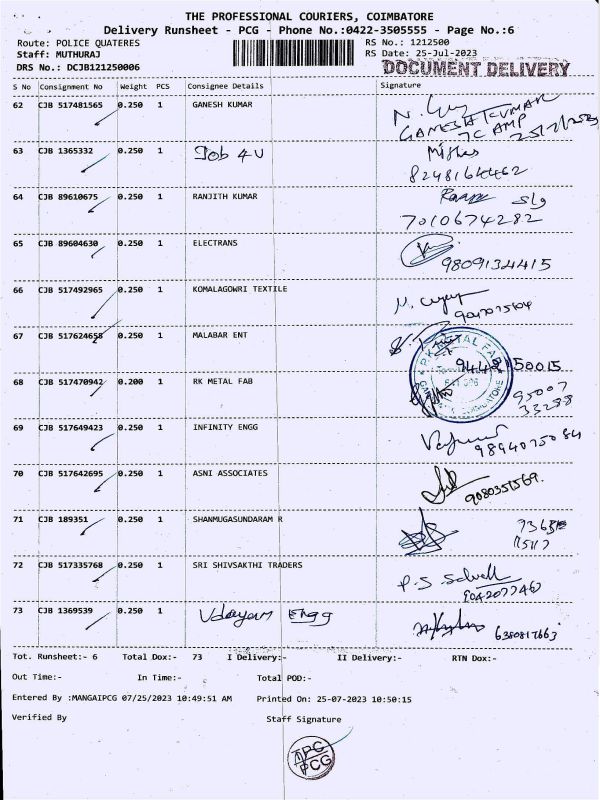 THE PROFESSIONAL COURIERS, COIMBATORE
Delivery Runsheet - PCG - Phone No.:0422-3505555 - Page No.:6
Route: POLICE QUATERES RS No.: 1212500
Staff: MUTHURAJ RS Date: 25-Jul-2023
DRS No.: DCJB121250006 DOCUMENT DELIVERY
S No Consignment No Weight PCS Consignee Details Signature
62 CJB 517481565 0.250 1 GANESH KUMAR
GANESH KUMAR
7C AMP 25/7/2023
63 CJB 1365332 0.250 1 Job 4 U
8248164462
64 CJB 89610675 0.250 1 RANJITH KUMAR
7010674282
65 CJB 89604630 0.250 1 ELECTRANS
9809134415
66 CJB 517492965 0.250 1 KOMALAGOWRI TEXTILE
67 CJB 517624658 0.250 1 MALABAR ENT
9442150015
68 CJB 517470942 0.200 1 RK METAL FAB
95007
33288
69 CJB 517649423 0.250 1 INFINITY ENGG
9894075084
70 CJB 517642695 0.250 1 ASNI ASSOCIATES
9080351569.
71 CJB 189351 0.250 1 SHANMUGASUNDARAM R
72 CJB 517335768 0.250 1 SRI SHIVSAKTHI TRADERS
P.S Selvall
73 CJB 1369539 0.250 1 Udayam Engg
6380817663
Tot. Runsheet:- 6 Total Dox:- 73 I Delivery:- II Delivery:- RTN Dox:-
Out Time:- In Time:- Total POD:-
Entered By :MANGAIPCG 07/25/2023 10:49:51 AM Printed On: 25-07-2023 10:50:15
Verified By Staff Signature
TPC
PCG